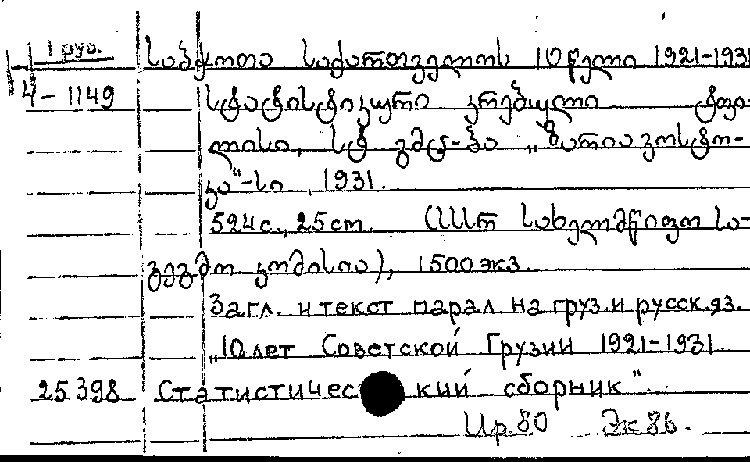 1 груз.
საბჭოთა საქართველოს 10 წელი 1921-1931
4-1149
სტატისტიკური კრებული ტფი-
ლისი, სტ. გმც-ბა „ზარია ვოსტო-
კა"-სი, 1931.
594 с., 25 cm. (ССРსახელმწიფო სა-
გეგმო კომისია), 1500 экз.
Загл. и текст парал. на груз. и русск. яз.
„10 лет Советской Грузии 1921-1931
25398 Статистический сборник".
Ир.80 Эк 86.